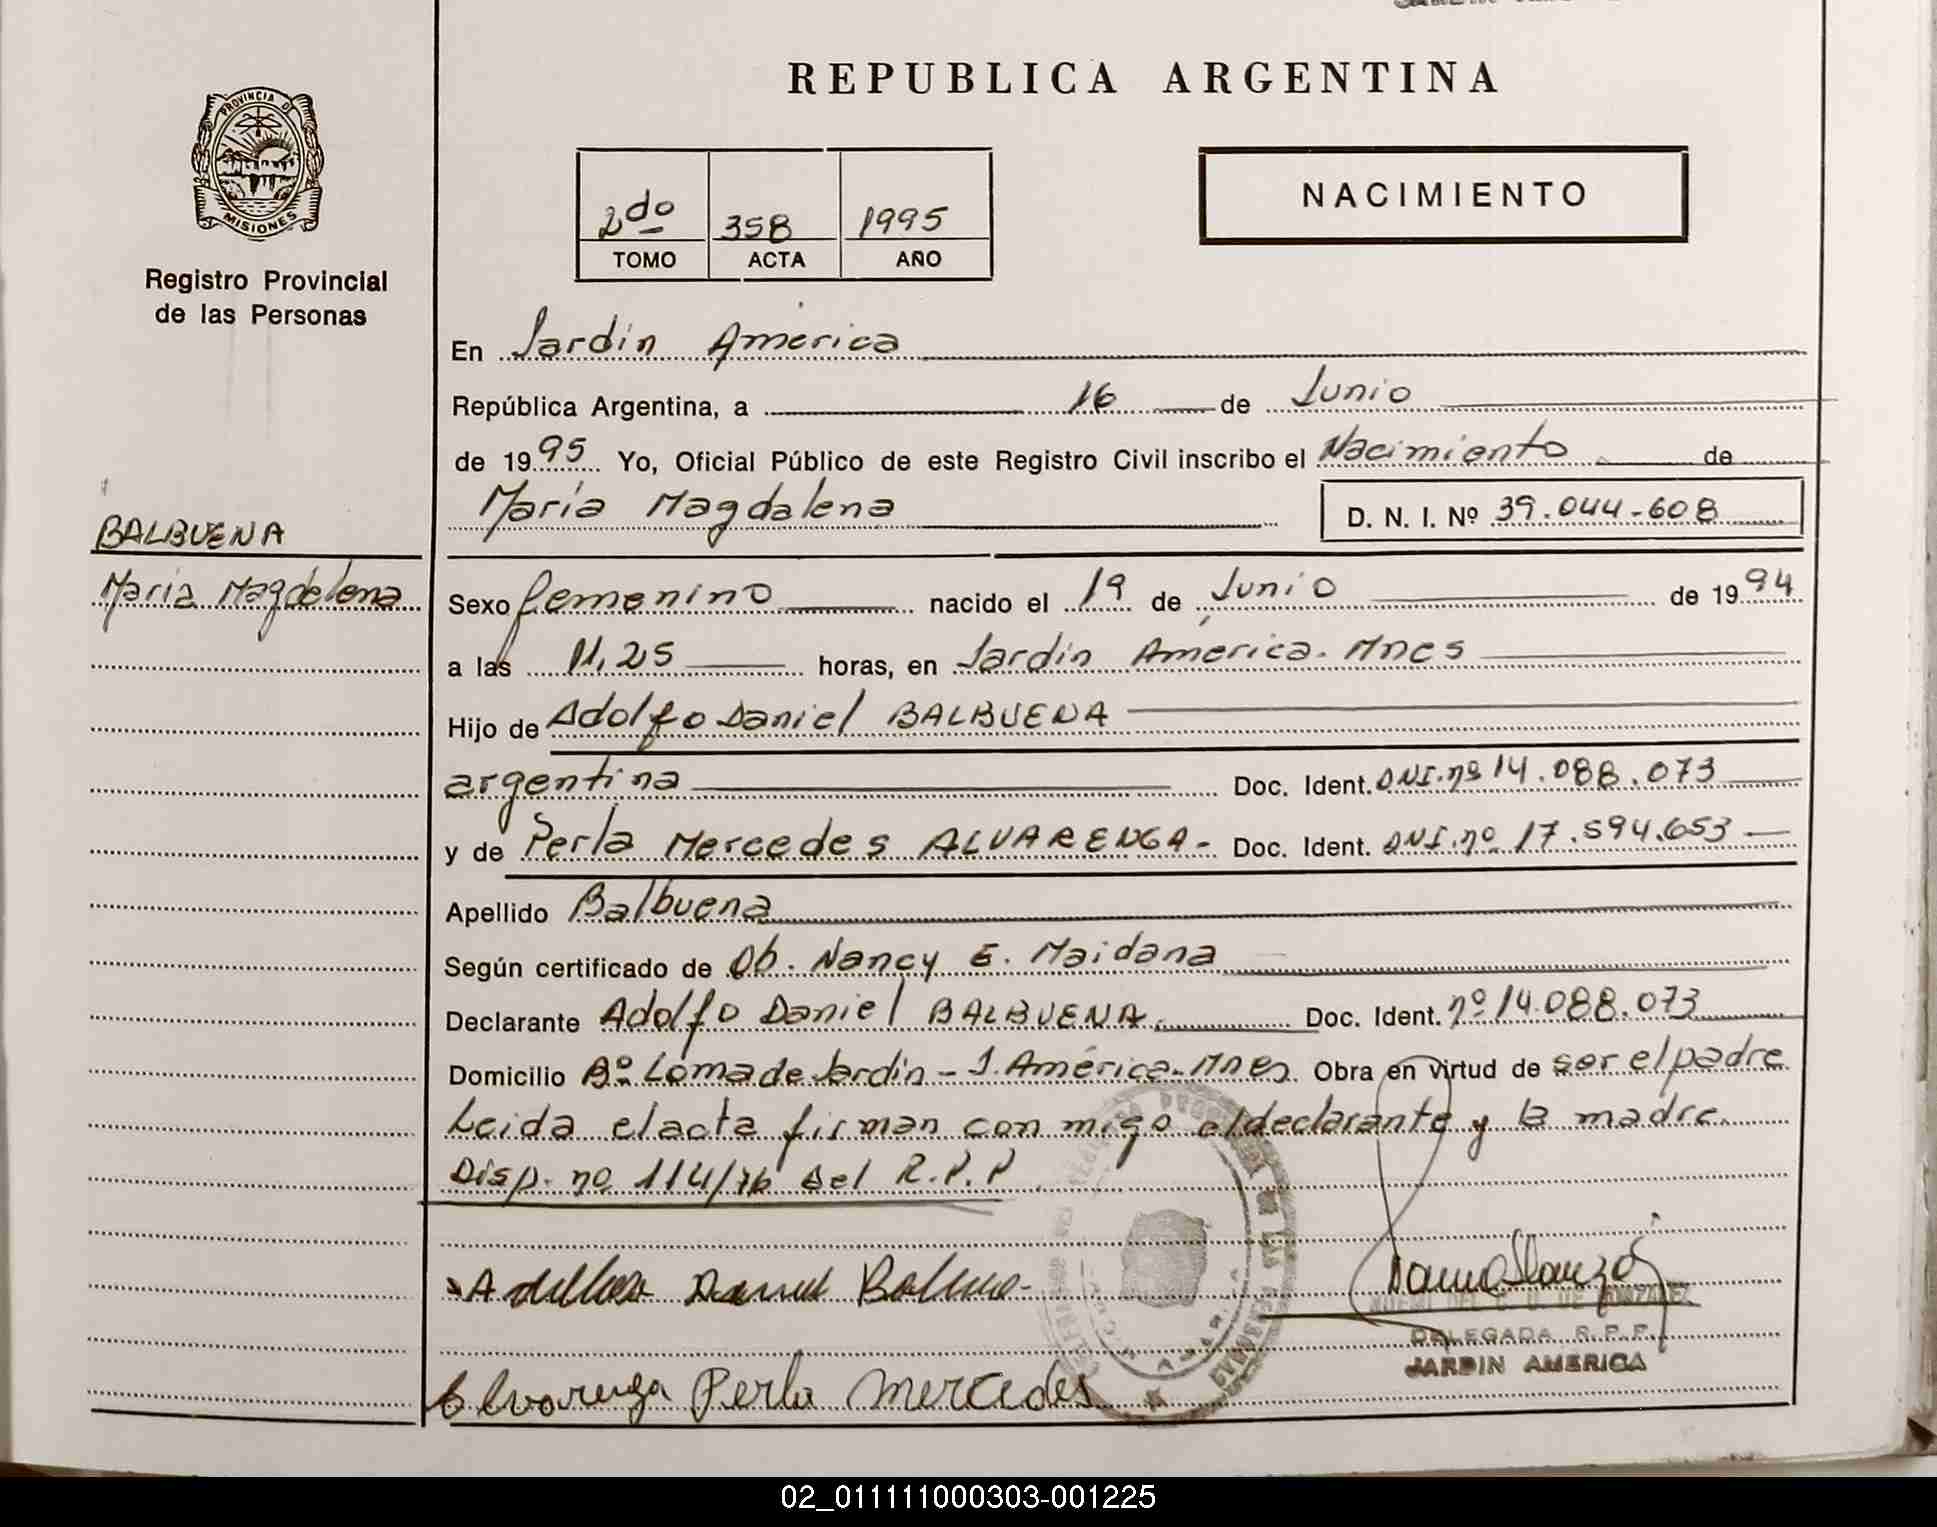 REPUBLICA ARGENTINA
PROVINCIA D
MISIONES
Registro Provincial
de las Personas
2do 358 1995
TOMO ACTA AÑO
NACIMIENTO
En Jardín América
República Argentina, a 16 de Junio
de 1995 Yo, Oficial Público de este Registro Civil inscribo el Nacimiento de
María Magdalena D. N. I. Nº 39.044.608
BALBUENA
María Magdalena
Sexo femenino nacido el 19 de Junio de 1994
a las 11,25 horas, en Jardín América. Mnes
Hijo de Adolfo Daniel BALBUENA
argentina Doc. Ident. DNI. nº 14.088.073
y de Perla Mercedes ALVARENGA - Doc. Ident. DNI. nº 17.594.653
Apellido Balbuena
Según certificado de Ob. Nancy E. Maidana
Declarante Adolfo Daniel BALBUENA. Doc. Ident. nº 14.088.073
Domicilio Bº Loma de Jardín - J. América - Mnes Obra en virtud de ser el padre
Leida el acta firman con migo el declarante y la madre.
Disp. nº 114/76 del R.P.P
Daniel
DELEGADA R.P.P.
JARDIN AMERICA
Alvarenga Perla Mercedes
02_011111000303-001225